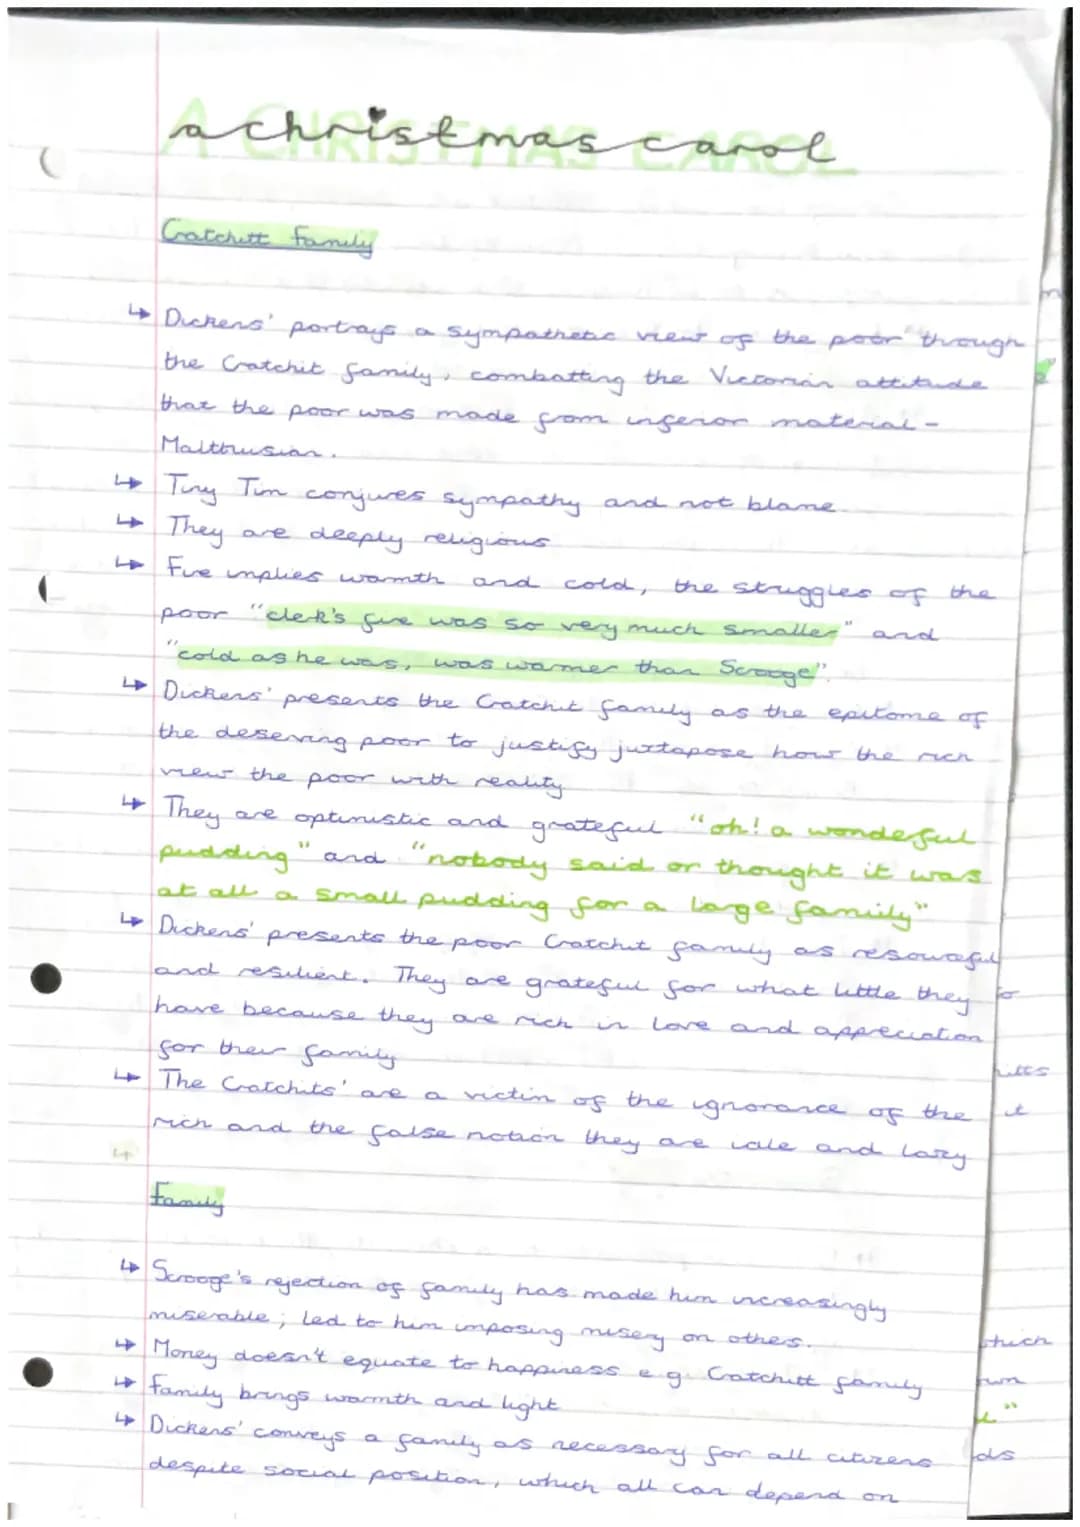 A CHRISTMAS CAROL
a christmas carol
Cratchitt Family
↳ Dickens' portrays a sympathetic view of the poor through
the Cratchit family, combatting the Victorian attitude
that the poor was made from inferior material -
Malthusian.
↳ Tiny Tim conjures sympathy and not blame
↳ They are deeply religious
↳ Fire implies warmth and cold, the struggles of the
poor "clerk's fire was so very much smaller" and
"cold as he was, was warmer than Scrooge".
↳ Dickens' presents the Cratchit family as the epitome of
the deserving poor to justify juxtapose how the rich
view the poor with reality
↳ They are optimistic and grateful "oh! a wonderful
pudding" and "nobody said or thought it was
at all a small pudding for a large family"
↳ Dickens' presents the poor Cratchit family as resourceful
and resilient. They are grateful for what little they
have because they are rich in love and appreciation
for their family
↳ The Cratchits' are a victim of the ignorance of the
rich and the false notion they are idle and lazy
Family
↳ Scrooge's rejection of family has made him increasingly
miserable; led to him imposing misery on others.
↳ Money doesn't equate to happiness e.g. Cratchitt family
↳ Family brings warmth and light
↳ Dickens' conveys a family as necessary for all citizens
despite social position, which all can depend on